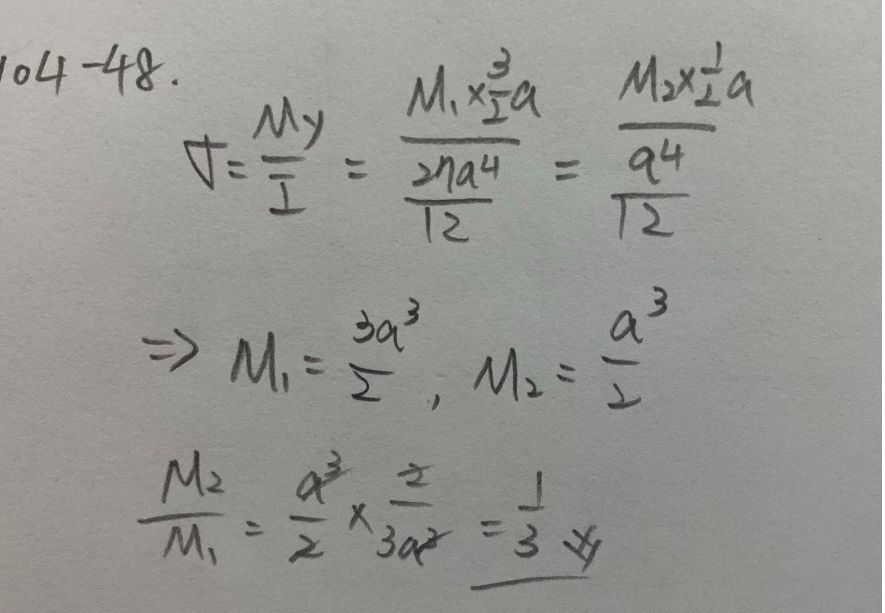 104-48.
σ = My/I = (M₁ × 3/2 a)/(27a⁴/12) = (M₂ × 1/2 a)/(a⁴/12)
⇒ M₁ = 3a³/2, M₂ = a³/2
M₂/M₁ = a³/2 × 2/3a³ = 1/3